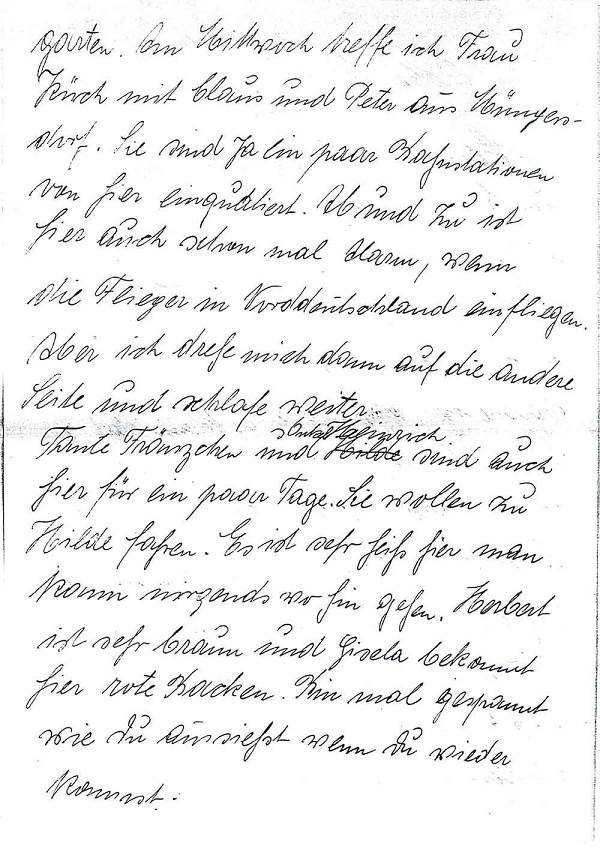 garten. Am Mittwoch treffe ich Frau
Kürch mit Claus und Peter aus Müngers-
dorf. Sie sind ja ein paar Bahnstationen
von hier einqutiert. Ab und zu ist
hier auch schon mal Alarm, wenn
die Flieger in Norddeutschland einfliegen.
Aber ich drehe mich dann auf die andere
Seite und schlafe weiter.
Onkel Heinrich
Tante Fränzchen und Hilde sind auch
hier für ein paar Tage. Sie wollen zu
Hilde fahren. Es ist sehr heiß hier man
kann nirgends wo hin gehen. Herbert
ist sehr braun und Gisela bekommt
hier rote Backen. Bin mal gespannt
wie du aussiehst wenn du wieder
kommst.